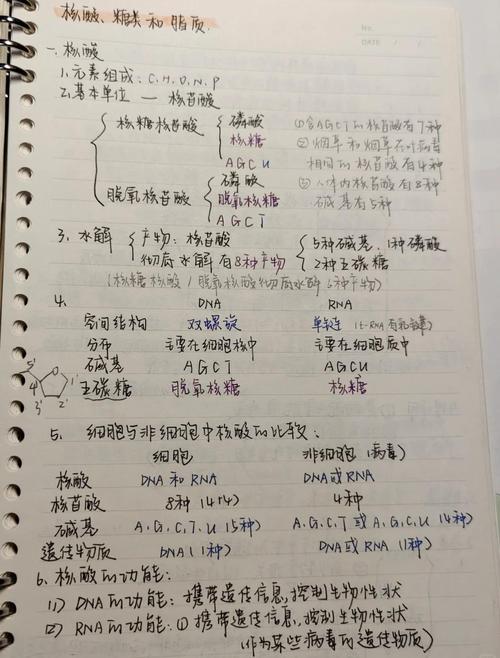 核酸、糖类和脂质.
NO.
DATE / /
一.核酸
1.元素组成:C.H.O.N.P
2.基本单位 — 核苷酸
核糖核苷酸 磷酸 ①含AGCT的核苷酸有7种
核糖 ②烟草和烟草花叶病毒
AGCU 相同的核苷酸有4种
磷酸 ③人体内核苷酸有8种
脱氧核苷酸 脱氧核糖 碱基有5种
AGCT
3.水解 产物:核苷酸 5种碱基.1种磷酸
彻底水解有8种产物 2种五碳糖
(核糖核酸/脱氧核酸彻底水解6种产物)
4. DNA RNA
空间结构 双螺旋 单链(t-RNA有氢键)
分布 主要在细胞核中 主要在细胞质中
碱基 AGCT AGCU
五碳糖 脱氧核糖 核糖
5' 4' 3' 2' 1'
5. 细胞与非细胞中核酸的比较:
细胞 非细胞(病毒)
核酸 DNA和RNA DNA或RNA
核苷酸 8种(4+4) 4种
碱基 A.G.C.T.U(5种) A.G.C.T或A.G.C.U(4种)
遗传物质 DNA(1种) DNA或RNA(1种)
6.核酸的功能:
(1) DNA的功能:携带遗传信息,控制生物性状
(2) RNA的功能:①携带遗传信息,控制生物性状
(作为某些病毒的遗传物质)